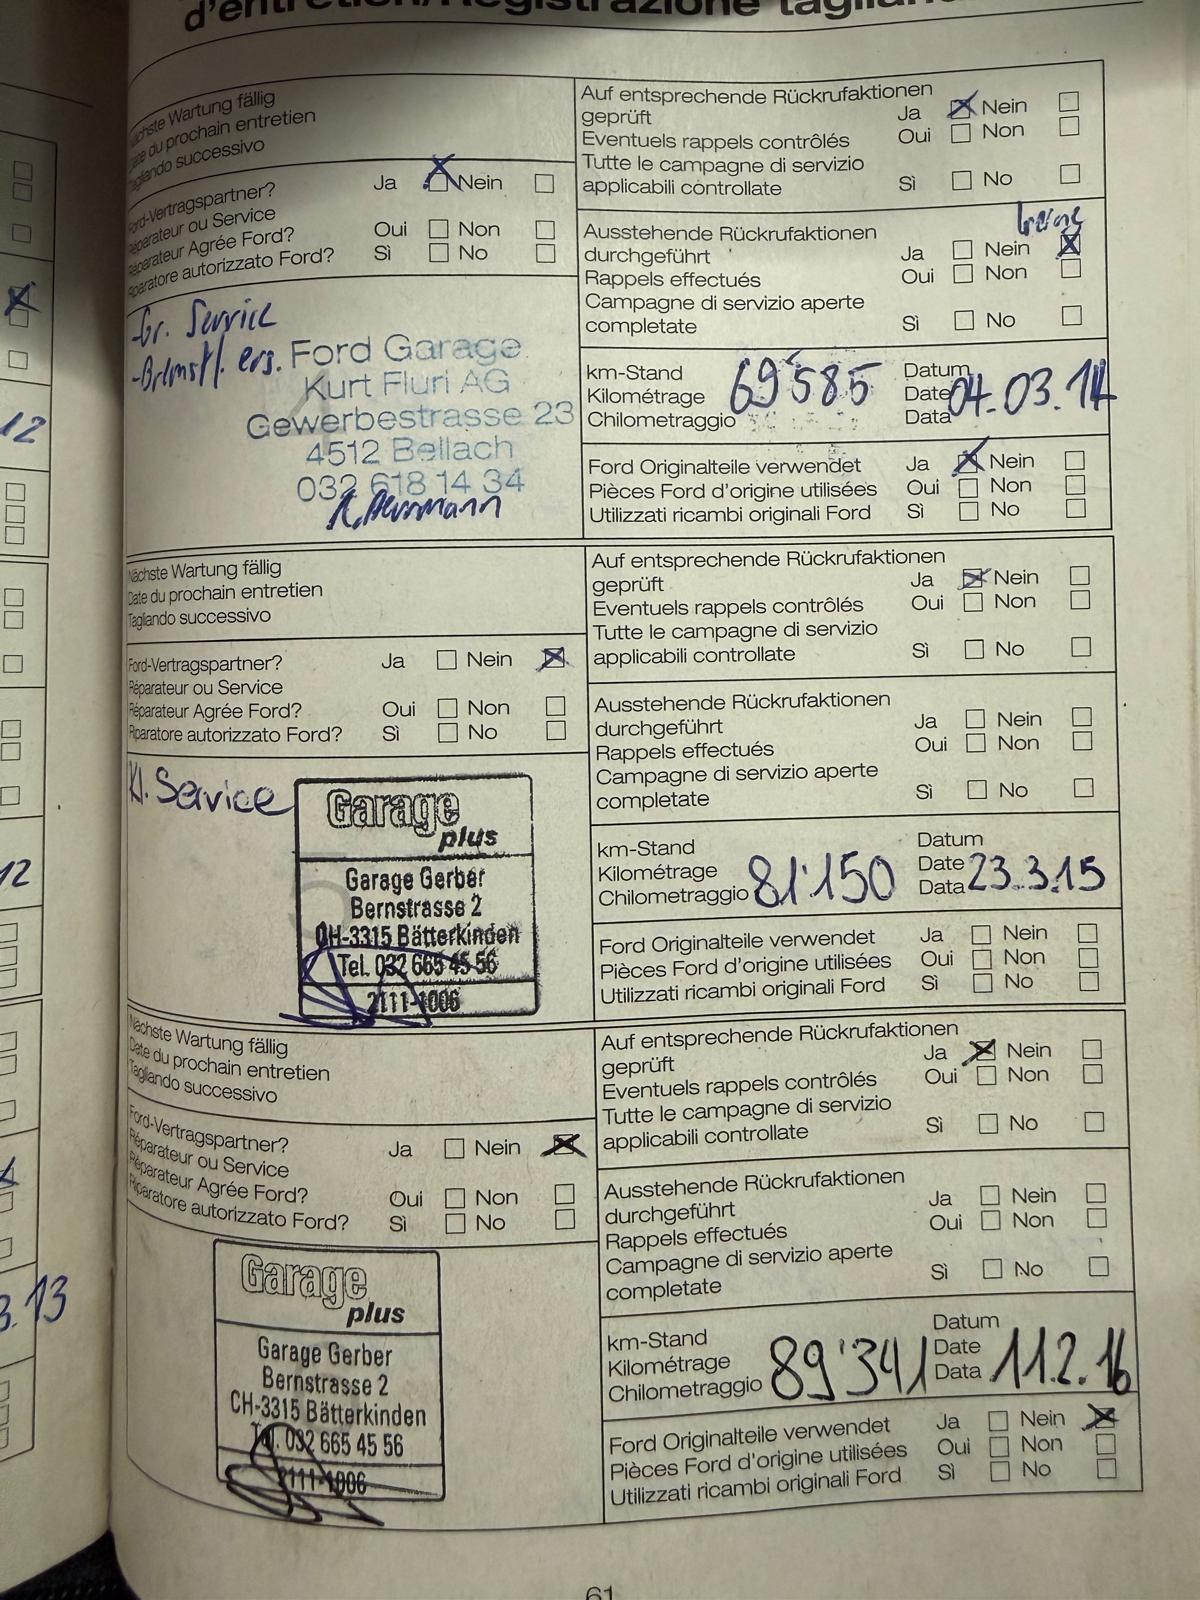 d'entretien/Registrazione
Nächste Wartung fällig
Date du prochain entretien
Tagliando successivo
Ford-Vertragspartner?
Réparateur ou Service
Réparateur Agrée Ford?
Riparatore autorizzato Ford?
Ja Nein
Oui Non
Sì No
-Gr. Service
-Bremsfl. ers.
Ford Garage
Kurt Fluri AG
Gewerbestrasse 23
4512 Bellach
032 618 14 34
Auf entsprechende Rückrufaktionen
geprüft
Ja Nein
Eventuels rappels contrôlés
Oui Non
Tutte le campagne di servizio
applicabili controllate
Sì No
keine
Ausstehende Rückrufaktionen
durchgeführt
Ja Nein
Rappels effectués
Oui Non
Campagne di servizio aperte
completate
Sì No
km-Stand
Kilométrage
Chilometraggio
69'585
Datum
Date
Data
04.03.14
Ford Originalteile verwendet Ja Nein
Pièces Ford d'origine utilisées Oui Non
Utilizzati ricambi originali Ford Sì No
Nächste Wartung fällig
Date du prochain entretien
Tagliando successivo
Ford-Vertragspartner? Ja Nein
Réparateur ou Service
Réparateur Agrée Ford? Oui Non
Riparatore autorizzato Ford? Sì No
Kl. Service
Garage
plus
Garage Gerber
Bernstrasse 2
CH-3315 Bätterkinden
Tel. 032 665 45 56
2111-1006
Auf entsprechende Rückrufaktionen
geprüft
Ja Nein
Eventuels rappels contrôlés
Oui Non
Tutte le campagne di servizio
applicabili controllate
Sì No
Ausstehende Rückrufaktionen
durchgeführt
Ja Nein
Rappels effectués
Oui Non
Campagne di servizio aperte
completate
Sì No
km-Stand
Kilométrage
Chilometraggio
81'150
Datum
Date
Data
23.3.15
Ford Originalteile verwendet Ja Nein
Pièces Ford d'origine utilisées Oui Non
Utilizzati ricambi originali Ford Sì No
Nächste Wartung fällig
Date du prochain entretien
Tagliando successivo
Ford-Vertragspartner? Ja Nein
Réparateur ou Service
Réparateur Agrée Ford? Oui Non
Riparatore autorizzato Ford? Sì No
Garage
plus
Garage Gerber
Bernstrasse 2
CH-3315 Bätterkinden
Tel. 032 665 45 56
2111-1006
Auf entsprechende Rückrufaktionen
geprüft
Ja Nein
Eventuels rappels contrôlés
Oui Non
Tutte le campagne di servizio
applicabili controllate
Sì No
Ausstehende Rückrufaktionen
durchgeführt
Ja Nein
Rappels effectués
Oui Non
Campagne di servizio aperte
completate
Sì No
km-Stand
Kilométrage
Chilometraggio
89'341
Datum
Date
Data
11.2.16
Ford Originalteile verwendet Ja Nein
Pièces Ford d'origine utilisées Oui Non
Utilizzati ricambi originali Ford Sì No
61
12
12
3.13